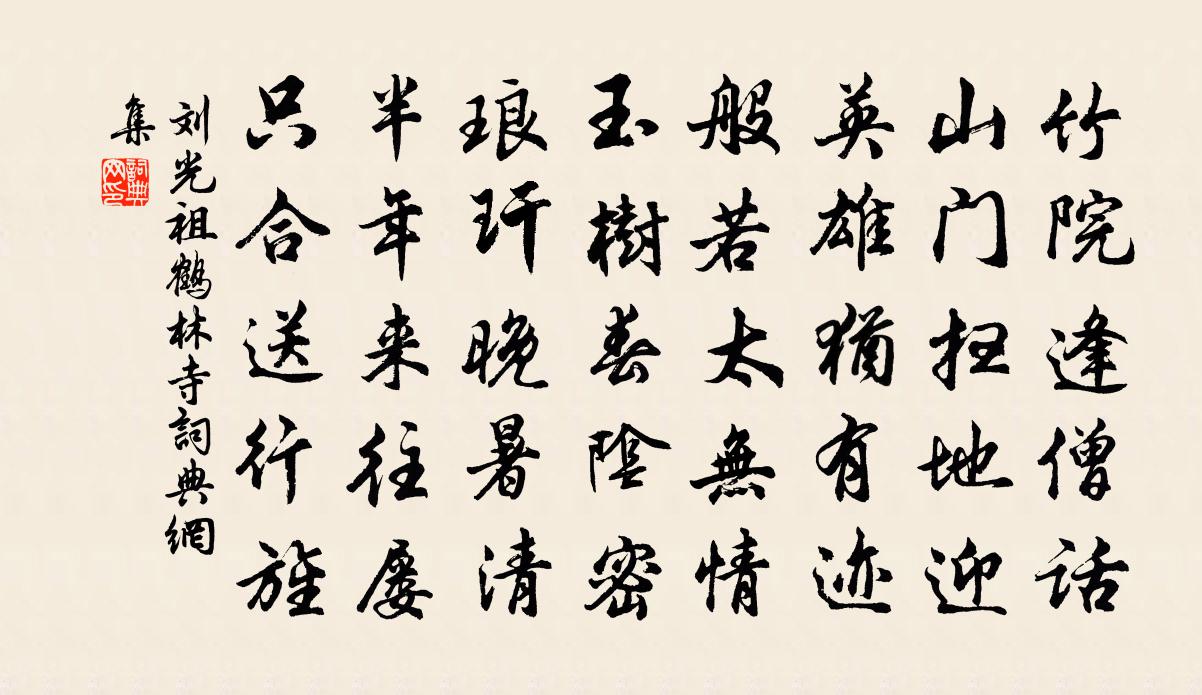 竹院逢僧话
山门扫地迎
英雄犹有迹
般若太無情
玉樹春陰密
琅玕晚暑清
半年来往屡
只合送行旌
刘光祖鹤林寺詞典網
集
詞典網印